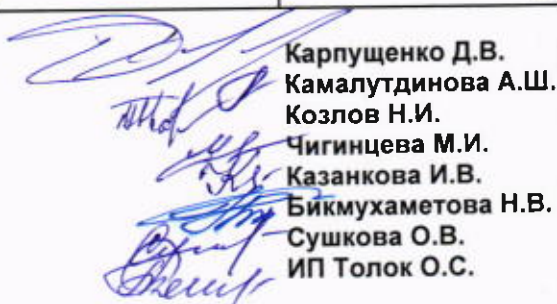 Карпущенко Д.В.
Камалутдинова А.Ш.
Козлов Н.И.
Чигинцева М.И.
Казанкова И.В.
Бикмухаметова Н.В.
Сушкова О.В.
ИП Толок О.С.